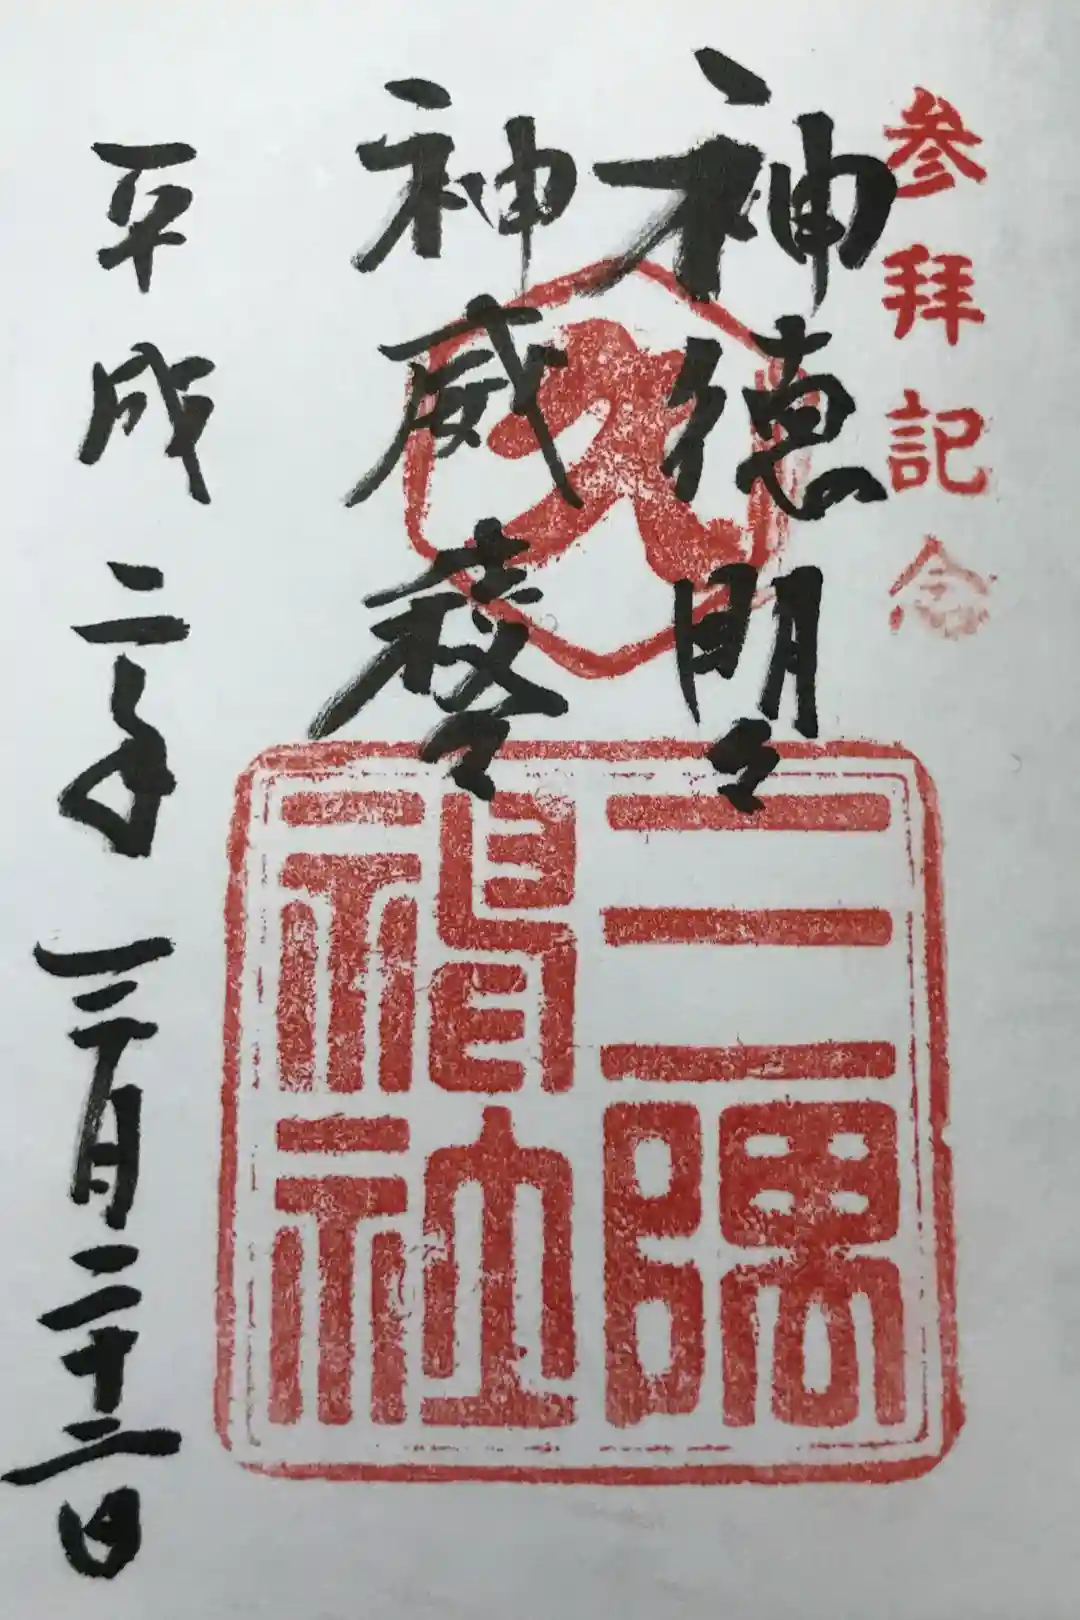 参拝記念
神徳明々
神威々
三隅神社
平成二年三月二十二日